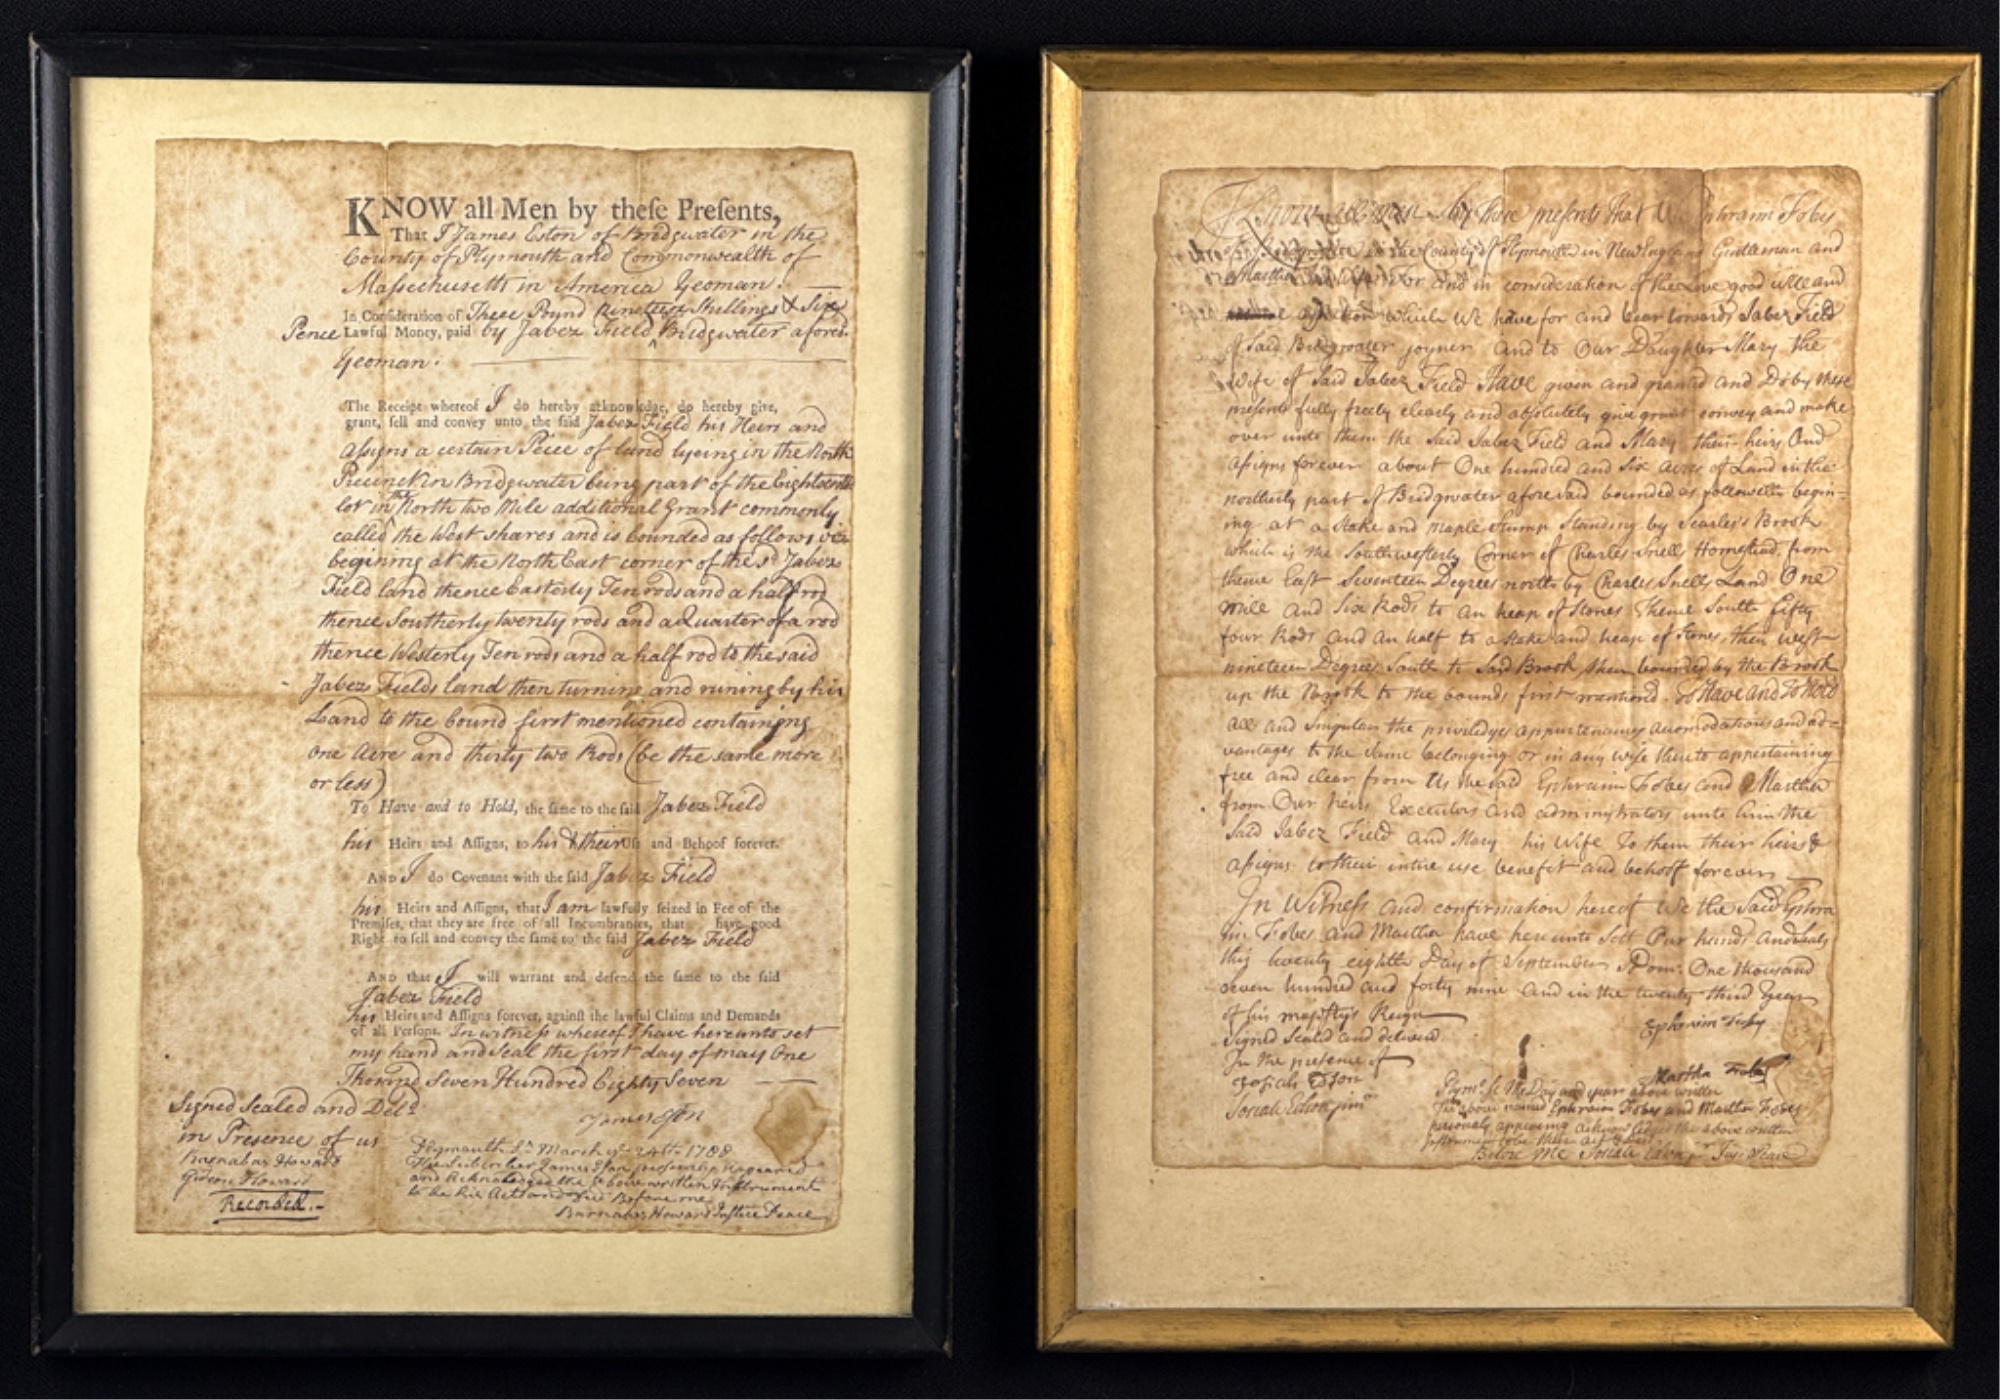 KNOW all Men by theſe Preſents,
That I James Eston of Bridgwater in the
County of Plymouth and Commonwealth of
Massechusetts in America Yeoman.
In Conſideration of Three Pound Nineteen Shillings & Six
Pence Lawful Money, paid by Jabez Field ^ Bridgwater afores.
Yeoman.
The Receipt whereof I do hereby acknowledge, do hereby give,
grant, ſell and convey unto the ſaid Jabez Field his Heirs and
assigns a certain Peice of land lyeing in the North
Precinct in Bridgwater being part of the Eighteenth
lot in the North two Mile additional Grant commonly
called the West shares and is bounded as follows viz
begining at the North East corner of the sd Jabez
Field land thence Easterly Ten rods and a half rod
thence Southerly twenty rods and a Quarter of a rod
thence Westerly Ten rods and a half rod to the said
Jabez Fields land then turning and runing by his
Land to the bound first mentioned containing
one Acre and thirty two Rods (be the same more
or less)
To Have and to Hold, the ſame to the ſaid Jabez Field
his Heirs and Aſſigns, to his & their Uſe and Behoof forever.
AND I do Covenant with the ſaid Jabez Field
his Heirs and Aſſigns, that I am lawfully ſeized in Fee of the
Premiſes, that they are free of all Incumbrances, that have good
Right to ſell and convey the ſame to the ſaid Jabez Field
AND that I will warrant and defend the ſame to the ſaid
Jabez Field
his Heirs and Aſſigns forever, againſt the lawful Claims and Demands
of all Perſons. In witness whereof I have hereunto set
my hand and Seal the first day of may One
Thousand Seven Hundred Eighty Seven
Signed Sealed and Deld
in Presence of us
Barnabas Howard
Gideon Howard
Recorded.
James
Plymouth Ss March ye 24th 1788
The Subscriber James personally appeared
and Acknowledged the above written Instrument
to be his Act and Before me
Barnabas Howard Justice Peace
Know all men by these presents that We Ephraim Fobes
of Bridgwater in the County of Plymouth in New England Gentleman and
Martha for and in consideration of the Love good will and
affection which We have for and bear towards Jabez Field
of Said Bridgwater joyner and to Our Daughter Mary the
Wife of Said Jabez Field Have given and granted and Do by these
presents fully freely clearly and absolutely give grant convey and make
over unto them the Said Jabez Field and Mary their heirs And
assigns forever about One hundred and Six acres of Land in the
northerly part of Bridgwater aforesaid bounded as followeth begin=
ing at a Stake and maple Stump Standing by Searles's Brook
which is the Southwesterly Corner of Charles Snell Homestead from
thence East Seventeen Degrees north by Charles Snells Land One
mile and Six Rods to an heap of Stones thence South fifty
four Rods and an half to a Stake and heap of Stones, then west
nineteen Degrees South to Said Brook then bounded by the Brook
up the Brook to the bounds first mentiond. To Have and To Hold
all and Singular the priviledges appurtenances accomodations and ad=
vantages to the Same belonging or in any wise there to appertaining
free and clear from Us the said Ephraim Fobes and Martha
from Our heirs Executors and administrators unto him the
Said Jabez Field and Mary his Wife To them their heirs &
assigns to their intire use benefit and behoof forever
In Witness and confirmation hereof We the Said Ephra
im Fobes and Martha have hereunto Sett Our hands and Seals
this twenty eighth Day of September A Dom: One thousand
seven hundred and forty nine and in the twenty third Year
of his majesty's Reign
Signed Sealed and deliverd
In the presence of
Josiah Edson
Josiah Edson junr
Ephraim Foby
Martha Fobes
Plymo. Ss The Day and year above written
The above named Ephraim Fobes and Martha Fobes
personally appearing acknowledged the above written
Instrument to be their act & deed
Before Me Josiah Edson Jus: Peace